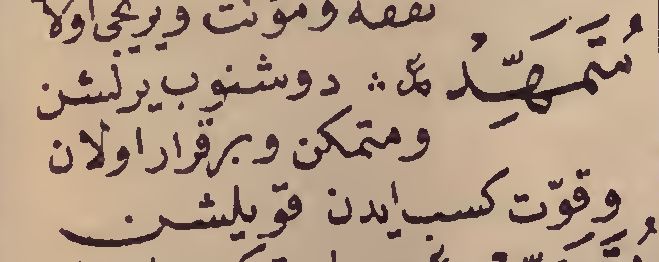 نفقه و مؤنت ویریجی اولا
مُتَمَهِّدُ ع دوشنوب یرلشن
و متمکن و برقرار اولان
و قوّت کسب ایدن قویلشن